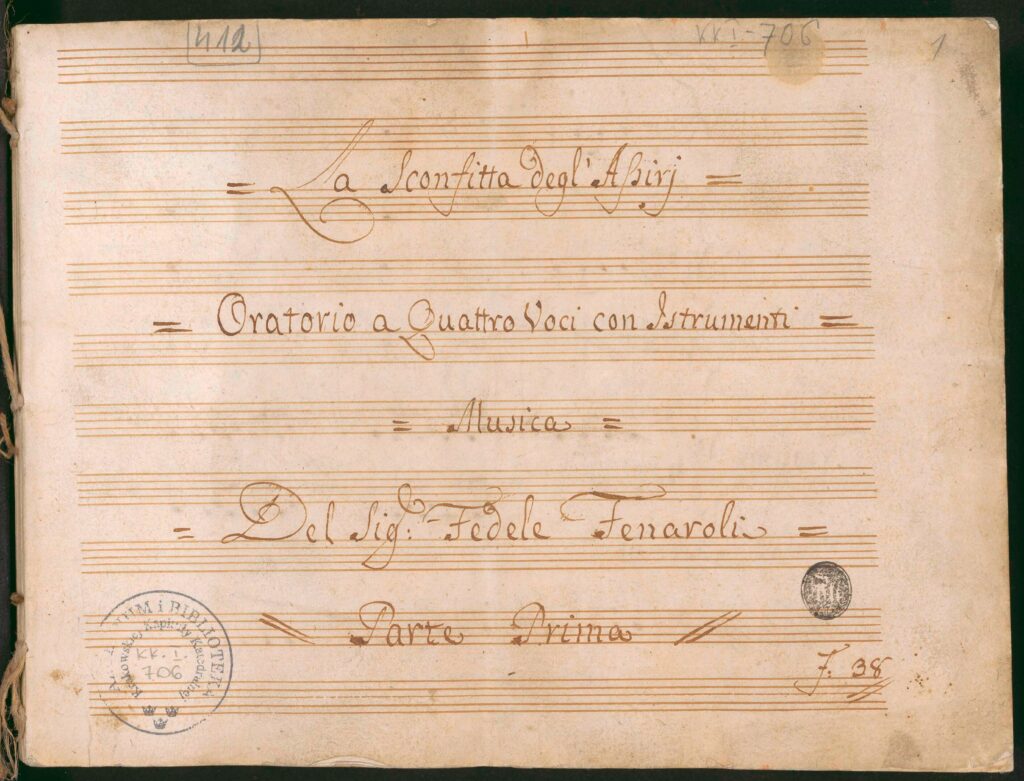 412
KK I-706
1
= La Sconfitta degl' Aßirj =
= Oratorio a Quattro Voci con Istrumenti =
= Musica =
= Del Sigͬ: Fedele Fenaroli =
Parte Prima
f. 38
ARCHIWUM i BIBLIOTEKA
Krakowskiej Kapituły Katedralnej
KK. I.
706